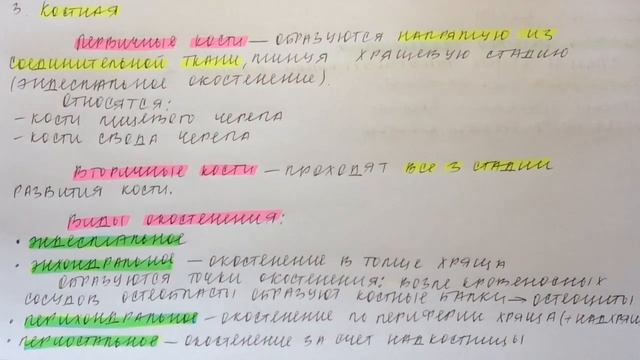 3. КОСТНАЯ
ПЕРВИЧНЫЕ КОСТИ — ОБРАЗУЮТСЯ НАПРЯМУЮ ИЗ
СОЕДИНИТЕЛЬНОЙ ТКАНИ, МИНУЯ ХРЯЩЕВУЮ СТАДИЮ
(ЭНДЕСМАЛЬНОЕ ОКОСТЕНЕНИЕ).
ОТНОСЯТСЯ:
- КОСТИ ЛИЦЕВОГО ЧЕРЕПА
- КОСТИ СВОДА ЧЕРЕПА
ВТОРИЧНЫЕ КОСТИ — ПРОХОДЯТ ВСЕ 3 СТАДИИ
РАЗВИТИЯ КОСТИ.
ВИДЫ ОКОСТЕНЕНИЯ:
• ЭНДЕСМАЛЬНОЕ
• ЭНХОНДРАЛЬНОЕ — ОКОСТЕНЕНИЕ В ТОЛЩЕ ХРЯЩА
ОБРАЗУЮТСЯ ТОЧКИ ОКОСТЕНЕНИЯ: ВОЗЛЕ КРОВЕНОСНЫХ
СОСУДОВ ОСТЕОБЛАСТЫ ОБРАЗУЮТ КОСТНЫЕ БАЛКИ → ОСТЕОЦИТЫ
• ПЕРИХОНДРАЛЬНОЕ — ОКОСТЕНЕНИЕ ПО ПЕРИФЕРИИ ХРЯЩА (+ НАДХРЯЩ
• ПЕРИОСТАЛЬНОЕ — ОКОСТЕНЕНИЕ ЗА СЧЕТ НАДКОСТНИЦЫ